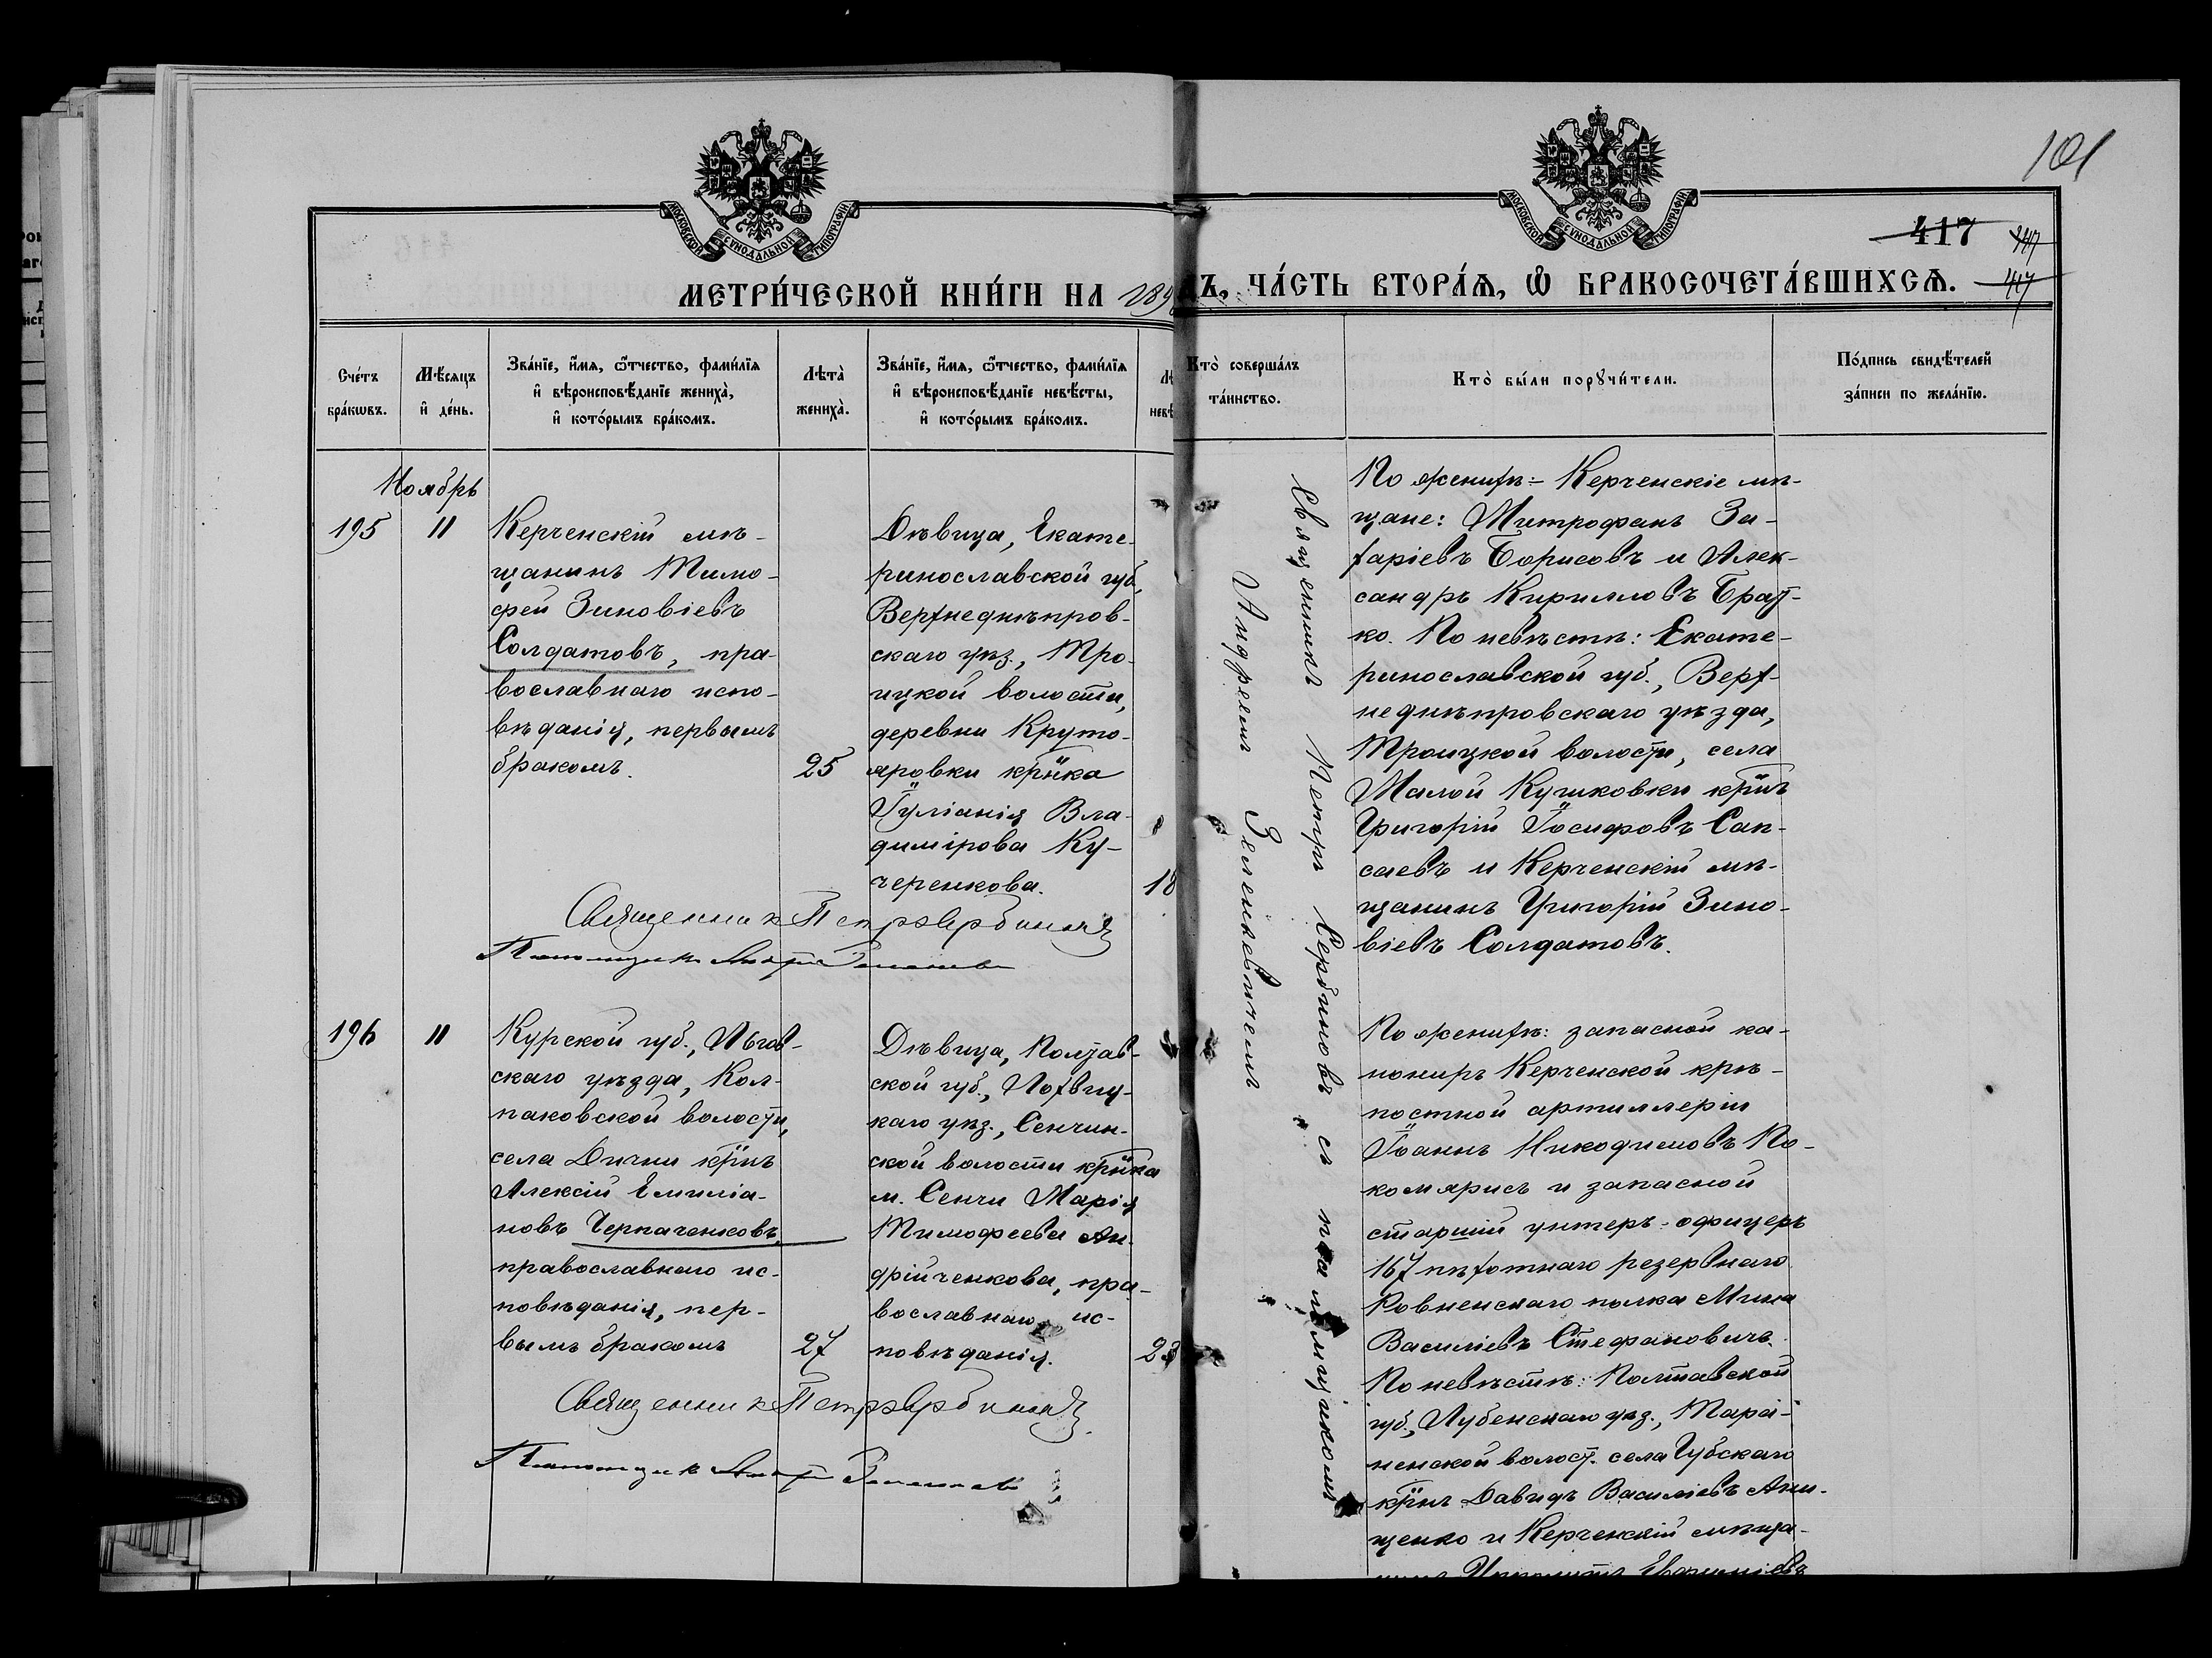 101
417
417
417
МОСКОВСКОЙ СѴНОДАЛЬНОЙ ТИПОГРАФІИ
МОСКОВСКОЙ СѴНОДАЛЬНОЙ ТИПОГРАФІИ
МЕТРИ́ЧЕСКОЙ КНИ́ГИ НА 189
ДЪ, ЧА́СТЬ ВТОРА́Ѧ, Ѽ БРАКОСОЧЕТА́ВШИХСѦ.
Сче́тъ
бра́кѡвъ.
Мѣ́сяцъ
и҆ де́нь.
Зва́нїе, и҆́мѧ, ѻ҆́тчество, фами́лїѧ
и҆ вѣроисповѣ́данїе жениха̀,
и҆ кото́рымъ бра́комъ.
Лѣта̀
жениха̀.
Зва́нїе, и҆́мѧ, ѻ҆́тчество, фами́лїѧ
и҆ вѣроисповѣ́данїе невѣ́сты,
и҆ кото́рымъ бра́комъ.
Лѣ
невѣ
Кто̀ соверша́лъ
та́инство.
Кто̀ бы́ли порꙋчи́тели.
По́дпись свидѣ́телей
за́писи по жела́нїю.
Ноябрь
195
11
Керченскій мѣ-
щанинъ Тимо-
фей Зиновіевъ
Солдатовъ, пра-
вославнаго испо-
вѣданія, первымъ
бракомъ.
25
Дѣвица, Екате-
ринославской губ.,
Верхнеднѣпров-
скаго уѣз., Тро-
ицкой волости,
деревни Круто-
яровки крⷭ҇нка
Іуліанія Вла-
димірова Ку-
черенкова.
18
Священникъ Петръ Сербиновъ
Священникъ Петръ Сербиновъ съ псаломщикомъ
Андреемъ Зеленкевичемъ
По женихѣ:- Керченскіе мѣ-
щане: Митрофанъ За-
харіевъ Борисовъ и Алек-
сандръ Кирилловъ Брат-
ко. По невѣстѣ: Екате-
ринославской губ., Верх-
неднѣпровскаго уѣзда,
Троицкой волости, села
Малой Кушковки крнъ
Григорій Іосифовъ Сап-
саевъ и Керченскій мѣ-
щанинъ Григорій Зино-
віевъ Солдатовъ.
196
11
Курской губ., Льгов-
скаго уѣзда, Кол-
паковской волости,
села Дични крнъ
Алексій Емиліа-
новъ Черпаченковъ,
православнаго ис-
повѣданія, пер-
вымъ бракомъ
27
Дѣвица, Полтав-
ской губ., Лохвиц-
каго уѣз., Сенчин-
ской волости крнка
м. Сенчи Марія
Тимофеева Ан-
дрійченкова, пра-
вославнаго ис-
повѣданія.
23
Священникъ Петръ Сербиновъ
По женихѣ: запасной ка-
нониръ Керченской крѣ-
постной артиллеріи
Іоаннъ Никодимовъ По-
комярисъ и запасной
старшій унтеръ-офицеръ
167 пѣхотнаго резервнаго
Ровненскаго полка Мина
Василіевъ Стефановичъ.
По невѣстѣ: Полтавской
губ., Лубенскаго уѣз., Тарі-
ненской волост. села Губскаго
крнъ Давидъ Василіевъ Они-
щенко и Керченскій мѣща-